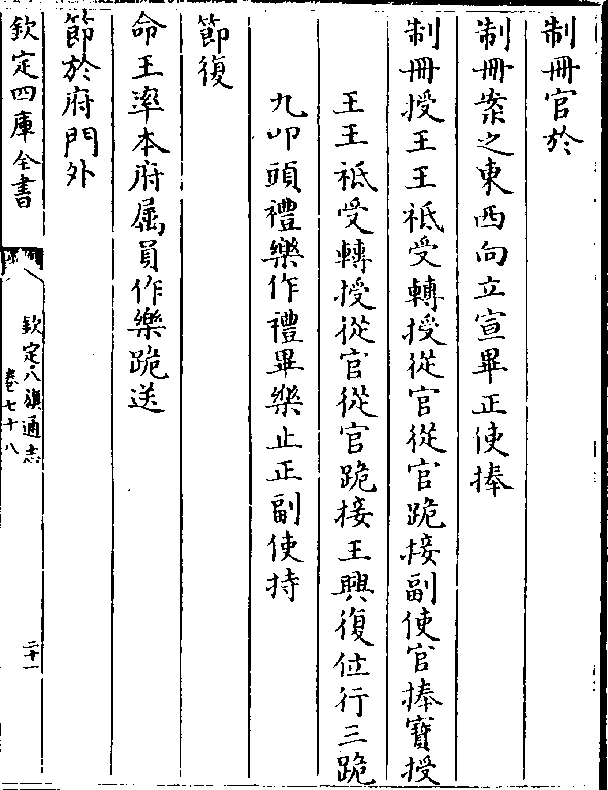 制冊官於
制冊案之東西向立宣畢正使捧
制冊授王王祗受轉授從官從官跪接副使官捧寶授
王王祗受轉授從官從官跪接王興復位行三跪
九叩頭禮樂作禮畢樂止正副使持
節復
命王率本府屬員作樂跪送
節於府門外
欽定四庫全書
欽定八旗通志
卷七十八
二十一